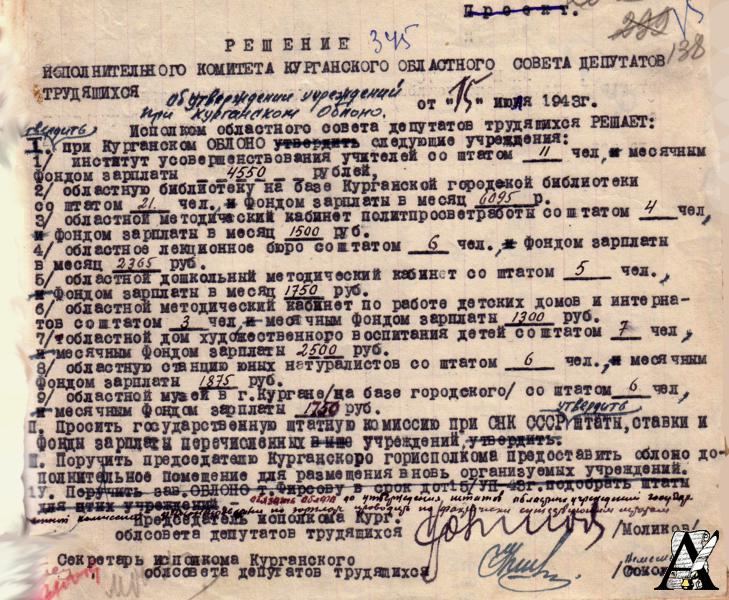 Проект.
299
138
РЕШЕНИЕ 345
ИСПОЛНИТЕЛЬНОГО КОМИТЕТА КУРГАНСКОГО ОБЛАСТНОГО СОВЕТА ДЕПУТАТОВ
ТРУДЯЩИХСЯ
Об утверждении учреждений
при Курганском Облоно.
от "15" июля 1943г.
Исполком областного совета депутатов трудящихся РЕШАЕТ:
I. при Курганском ОБЛОНО утвердить следующие учреждения:
1/ институт усовершенствования учителей со штатом 11 чел, и месячным
фондом зарплаты 4550 рублей,
2/ областную библиотеку на базе Курганской городской библиотеки
со штатом 21 чел. и фондом зарплаты в месяц 6095 р.
3/ областной методический кабинет политпросветработы со штатом 4 чел,
и фондом зарплаты в месяц 1500 руб.
4/ областное лекционное бюро со штатом 6 чел., и фондом зарплаты
в месяц 2365 руб.
5/ областной дошкольный методический кабинет со штатом 5 чел.,
и фондом зарплаты в месяц 1750 руб.
6/ областной методический кабинет по работе детских домов и интерна-
тов со штатом 3 чел и месячным фондом зарплаты 1300 руб.
7/ областной дом художественного воспитания детей со штатом 7 чел,
и месячным фондом зарплаты 2500 руб.
8/ областную станцию юных натуралистов со штатом 6 чел., и месячным
фондом зарплаты 1875 руб.
9/ областной музей в г.Кургане/на базе городского/ со штатом 6 чел,
и месячным фондом зарплаты 1750 руб.
утвердить
П. Просить государственную штатную комиссию при СНК СССР штаты, ставки и
фонды зарплаты перечисленных выше учреждений, утвердить.
Ш. Поручить председателю Курганского горисполкома предоставить облоно до-
полнительное помещение для размещения вновь организуемых учреждений.
1У. Поручить зав.ОБЛОНО т.Фирсову в срок до 15/УП-43г. подобрать штаты
для этих учреждений
обязать облоно до утверждения штатов
Председатель исполкома Кург.
облсовета депутатов трудящихся /Моликов/
Секретарь исполкома Курганского
облсовета депутатов трудящихся